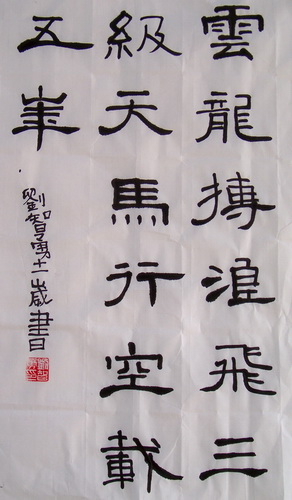 雲龍搏浪飛三
級天馬行空載
五峯
劉智勇十二歲書